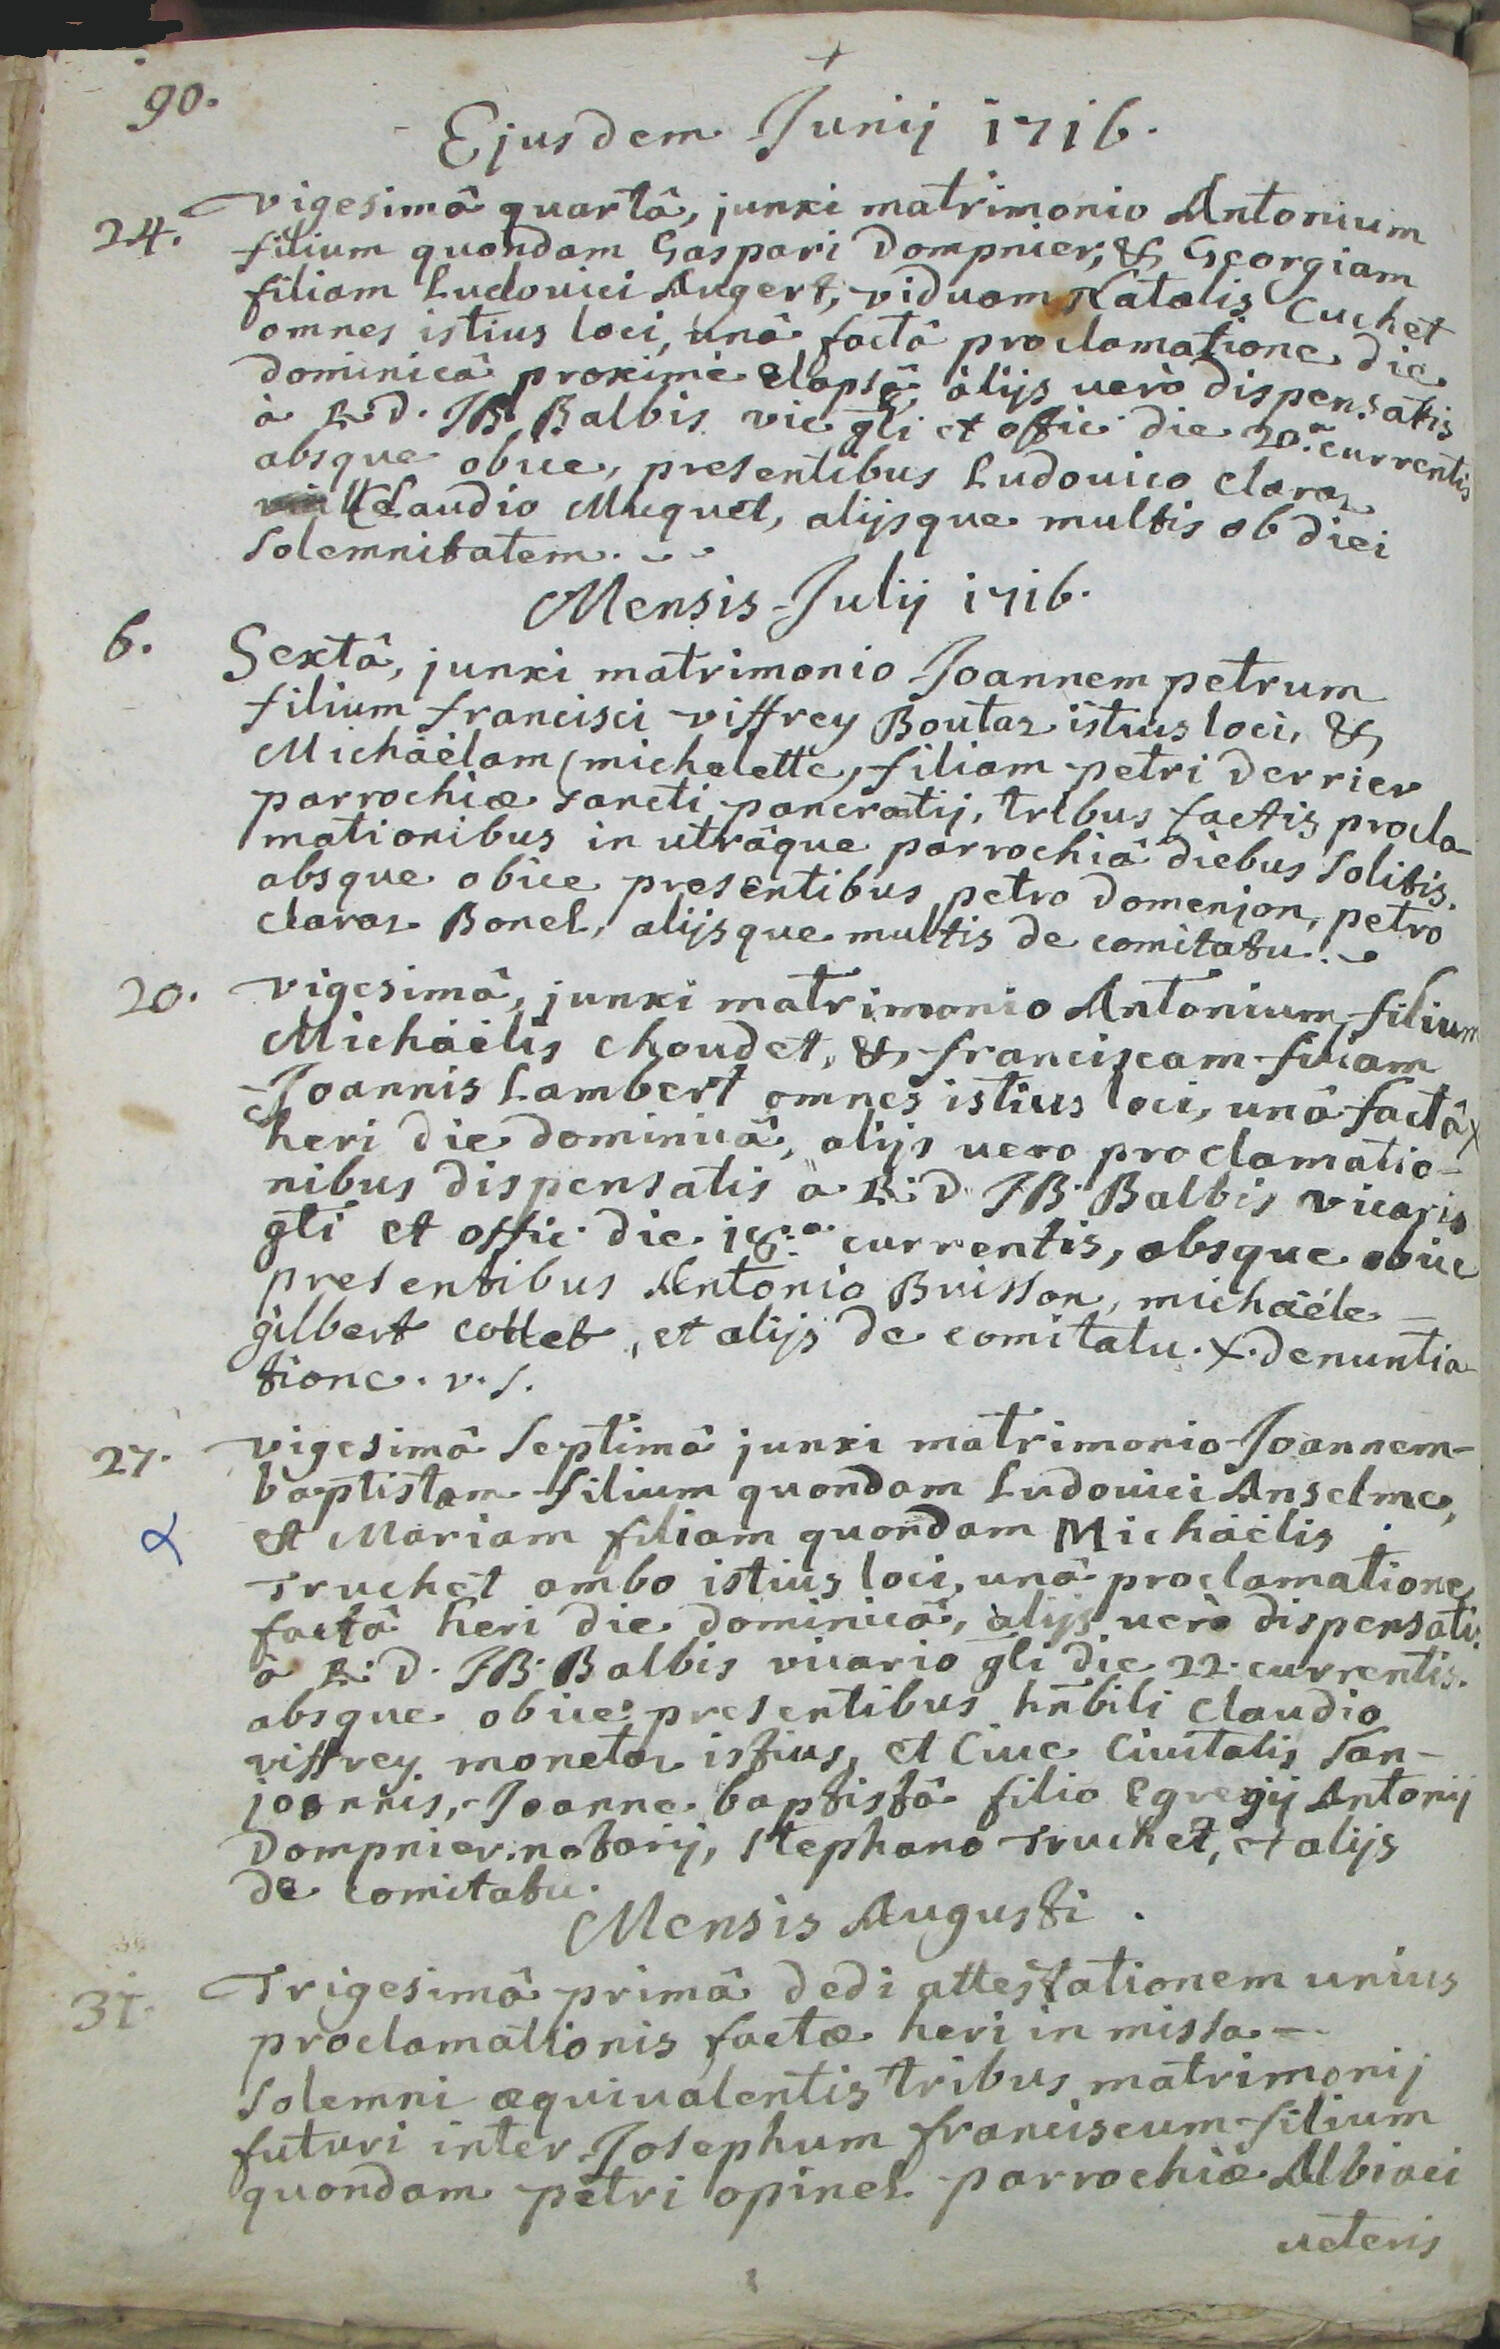 +
90.
Ejusdem Junij 1716.
24. vigesimâ quartâ, junxi matrimonio Antonium
filium quondam Gaspari Dompnier, & Georgiam
filiam Ludovici Augert, viduam Natalis Cuchet
omnes istius loci, unâ factâ proclamatione die
dominicâ proximè elapsâ, alijs uerò dispensatis
à R.D. JB. Balbis vic gli et offic die 20.a currentis
absque obice, presentibus Ludovico Claraz
Claudio Muquet, alijsque multis ob diei
solemnitatem.
Mensis Julij 1716.
6. Sextâ, junxi matrimonio Joannem petrum
filium francisci viffrey Boutaz istius loci, &
Michaëlam (michelette, filiam petri Derrier
parrochiæ sancti pancratij, tribus factis procla-
mationibus in utrâque parrochiâ diebus solitis.
absque obice presentibus petro Domenjon, petro
claraz Bonel, alijsque multis de comitatu.
20. vigesimâ, junxi matrimonio Antonium filium
Michaëlis Choudet, & franciscam filiam
Joannis Lambert omnes istius loci, unâ factâ x
heri die dominicâ, alijs uero proclamatio-
nibus dispensatis a R.D. JB. Balbis vicario
gli et offic. die 18.a currentis, absque obice
presentibus Antonio Brisson, michaële
gilbert collet, et alijs de comitatu. x. denuntia-
tione. v. s.
27. vigesimâ septimâ junxi matrimonio Joannem-
baptistam filium quondam Ludovici Anselme,
et Mariam filiam quondam Michaëlis
Truchet ambo istius loci, unâ proclamatione
factâ heri die dominicâ, alijs uerò dispensatis
à R.D. JB. Balbis vicario gli die 22. currentis.
absque obice presentibus hnbili Claudio
viffrey monetaz istius, et Ciue Ciuitatis san-
joannis, Joanne baptistâ filio Egregij Antonij
Dompnier notarij, stephano Truchet, et alijs
de comitatu.
Mensis Augusti.
31. Trigesimâ primâ dedi attestationem unius
proclamationis factæ heri in missa
solemni æquiualentis tribus matrimonij
futuri inter Josephum franciscum filium
quondam petri opinel parrochiæ Albiaci
ueteris